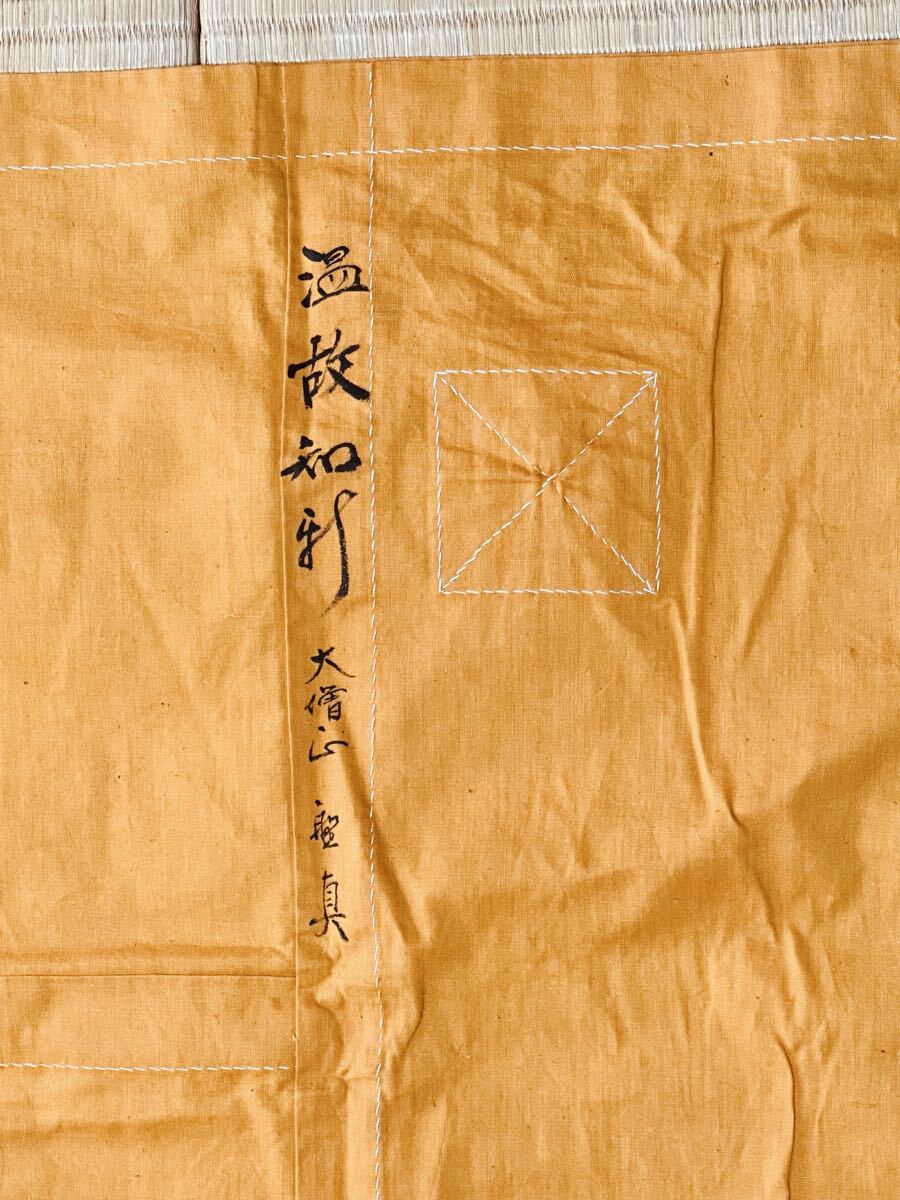 温故知新 大僧正 盤真